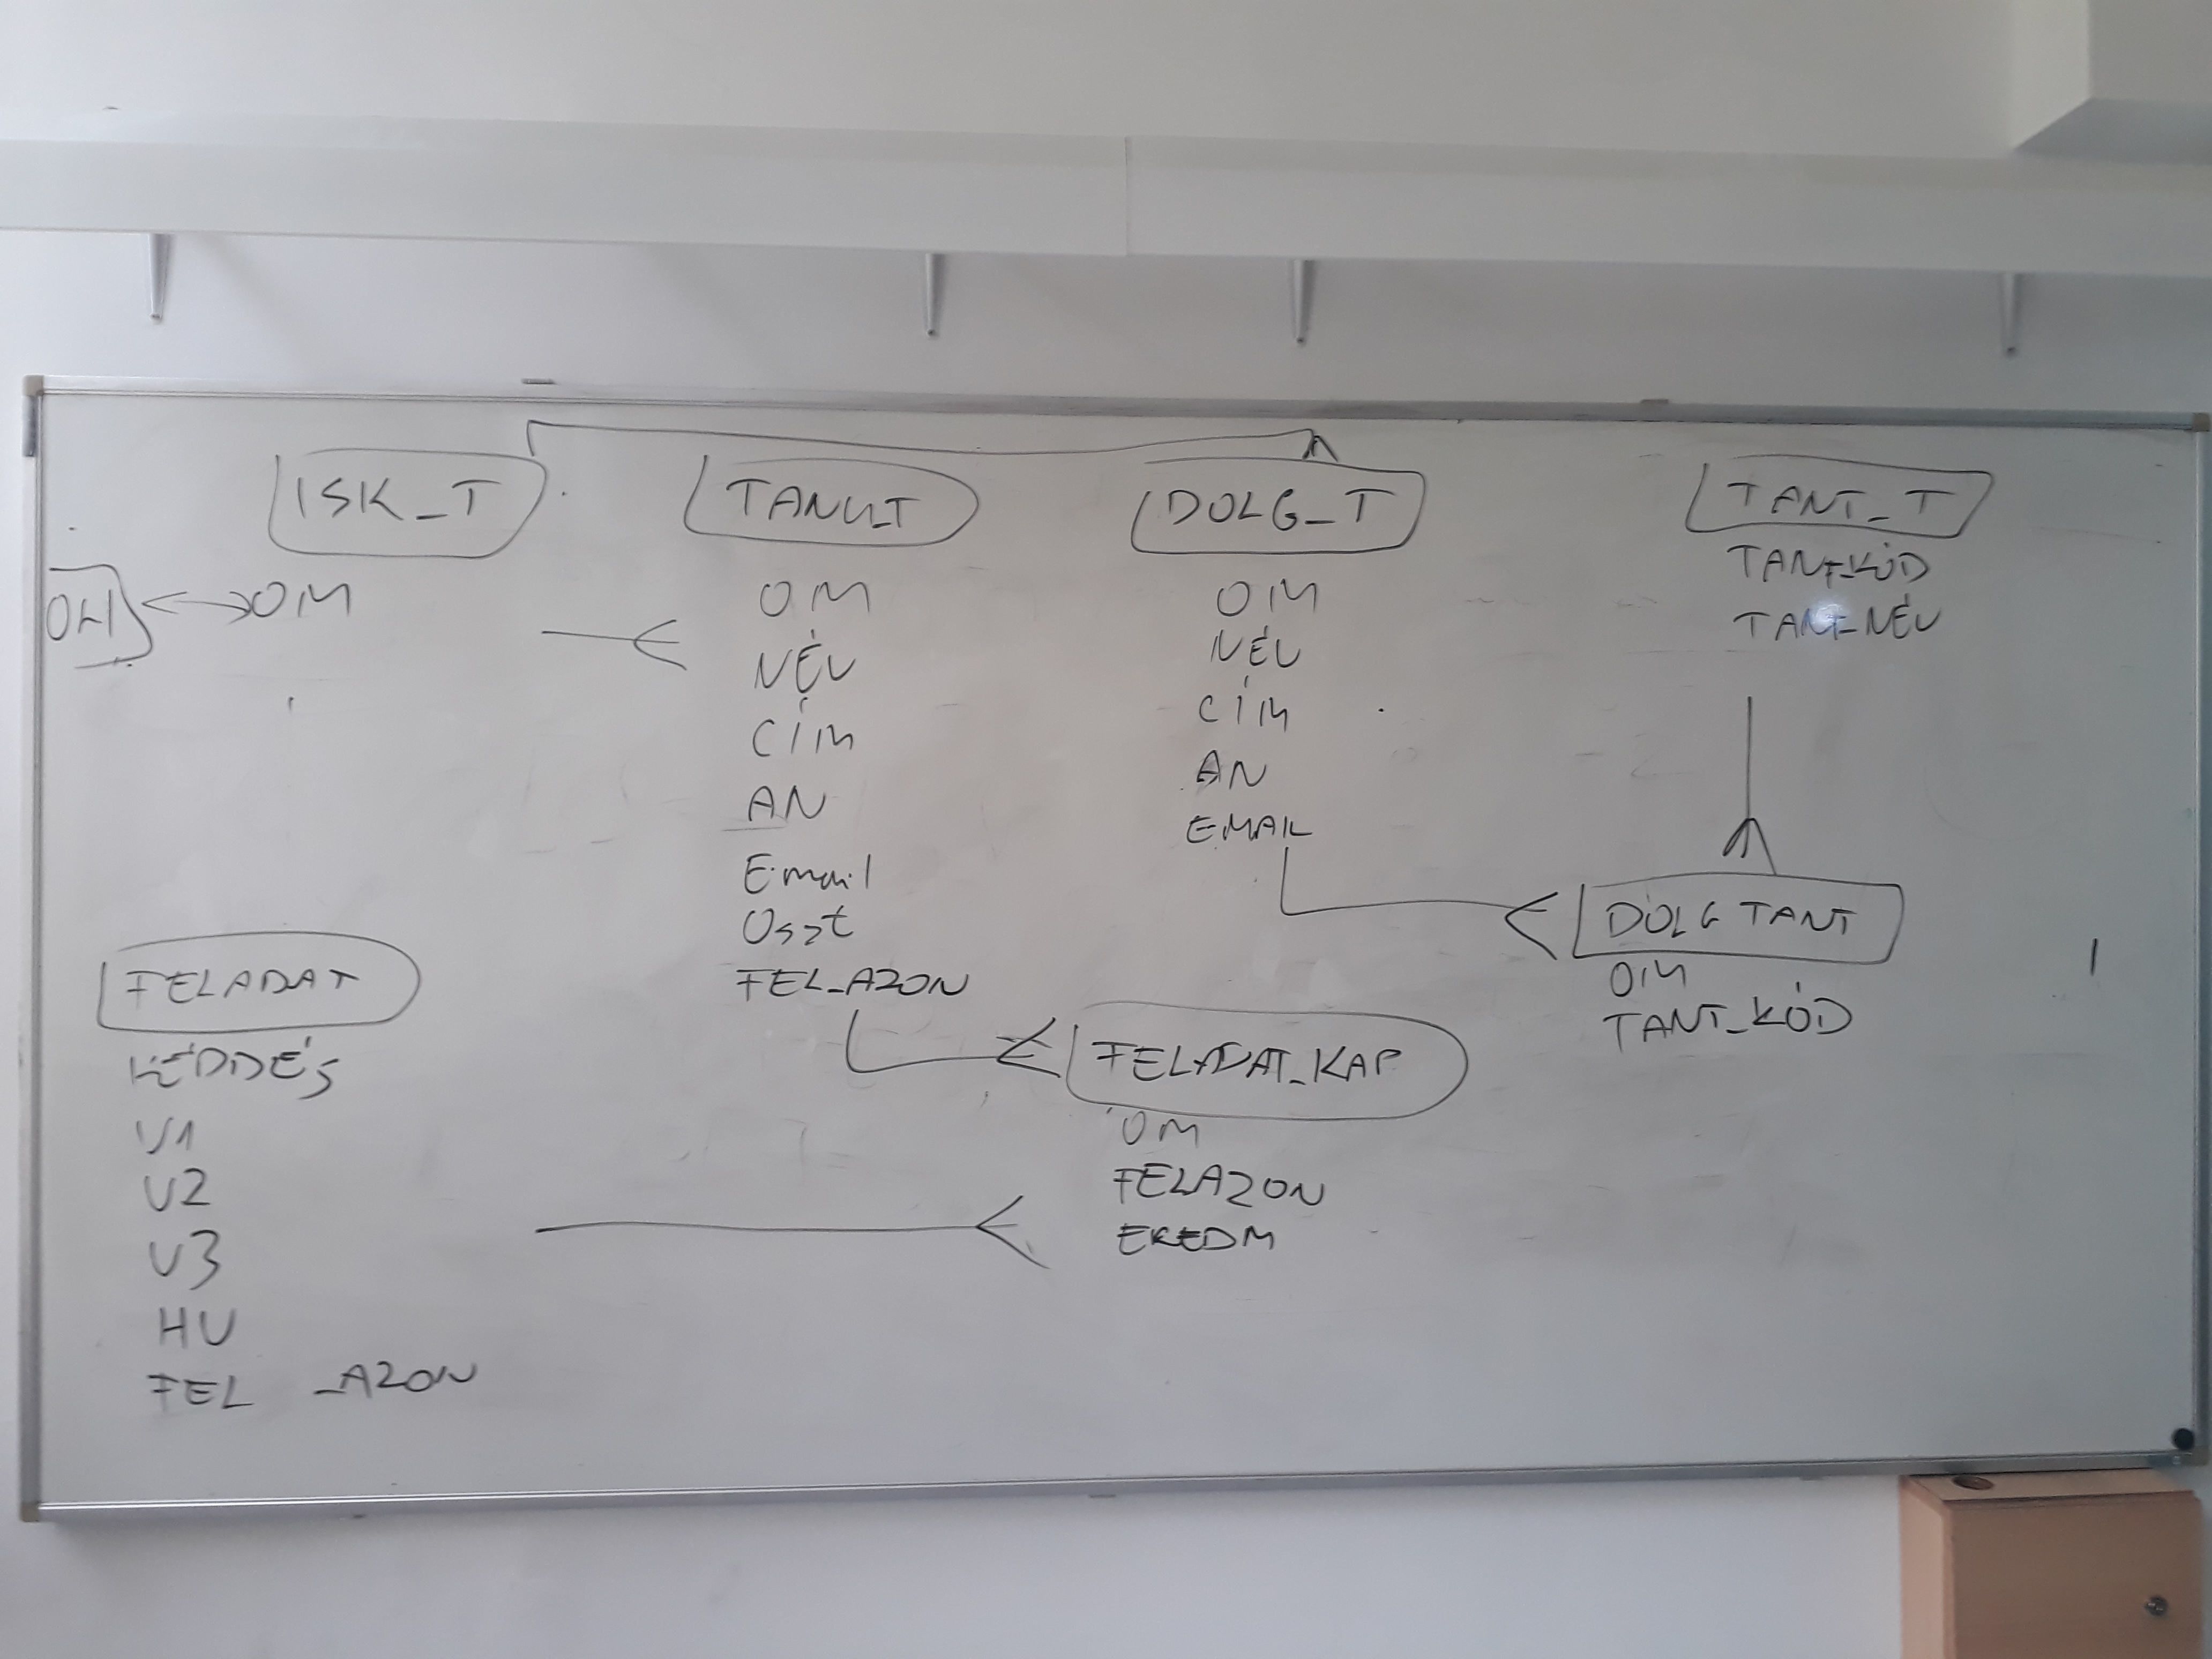 ISK_T
OM
OM
TANU_T
OM
NÉV
CÍM
AN
Email
Oszt
FEL_AZON
DOLG_T
OM
NÉV
CÍM
AN
EMAIL
TANT_T
TANT_KÓD
TANT_NÉV
DOLG TANT
OM
TANT_KÓD
FELADAT
KÉDDÉS
V1
V2
V3
HV
FEL _AZON
FELADAT_KAP
OM
FELAZON